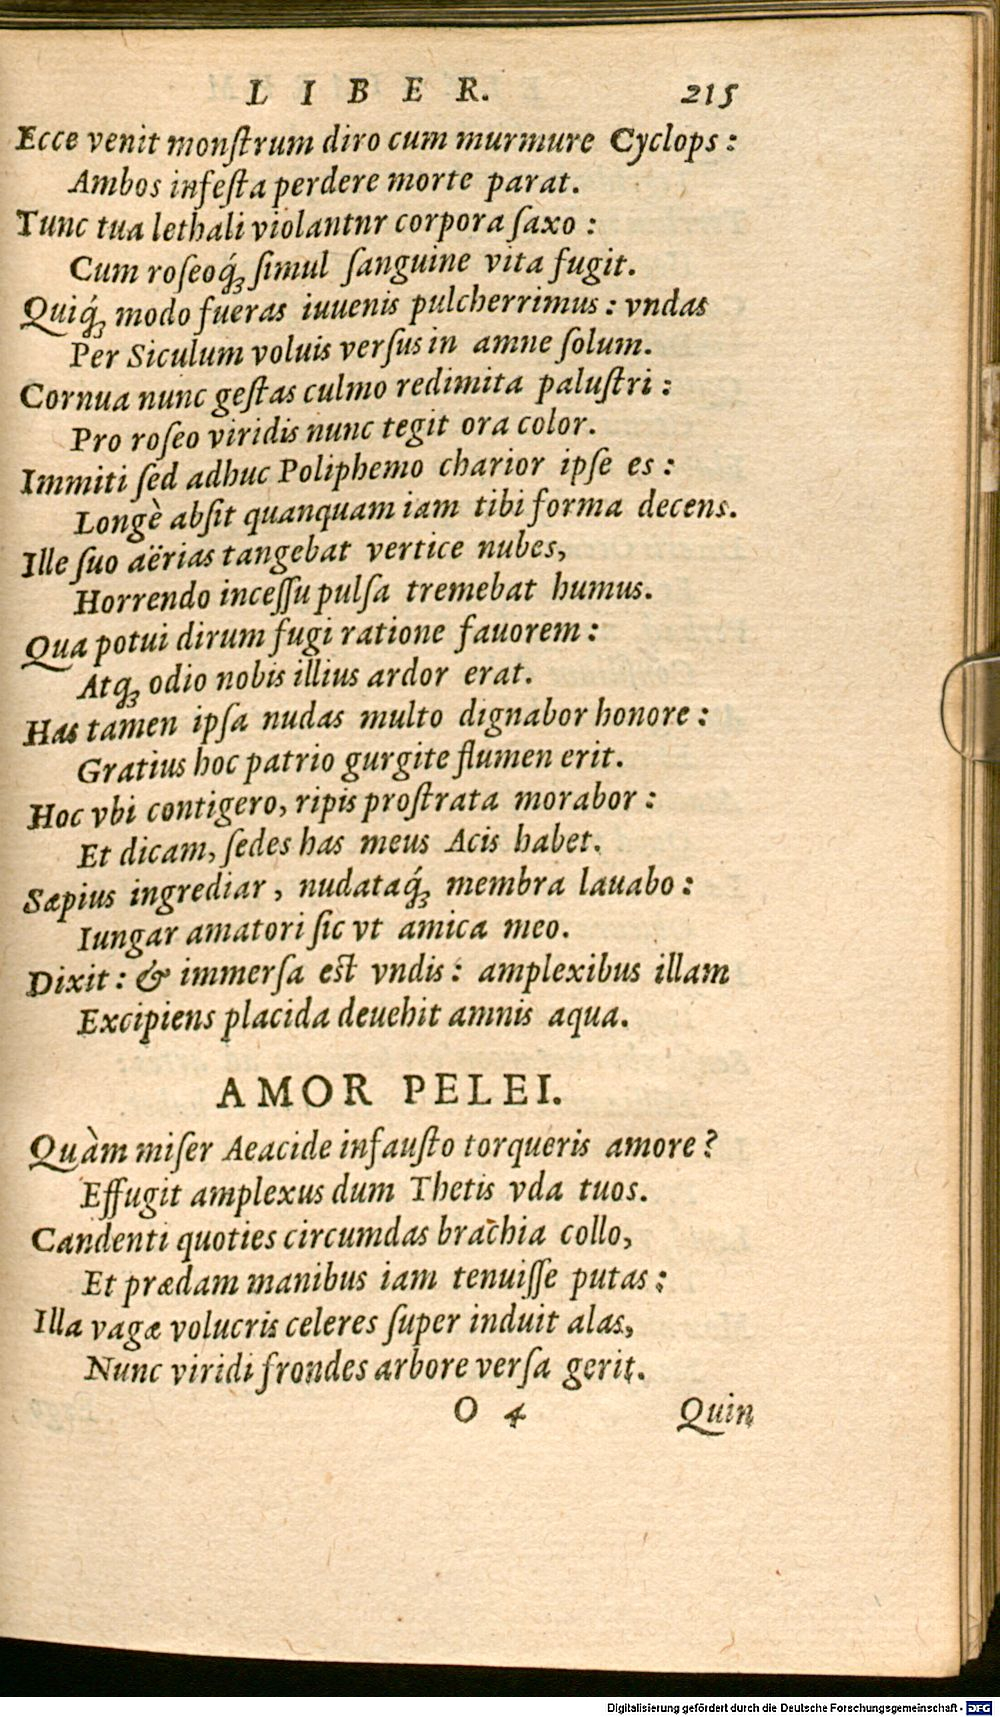 LIBER. 215
Ecce venit monſtrum diro cum murmure Cyclops:
Ambos infeſta perdere morte parat.
Tunc tua lethali violantnr corpora ſaxo:
Cum roſeoq́ꝫ ſimul ſanguine vita fugit.
Quiq́ꝫ modo fueras iuuenis pulcherrimus: vndas
Per Siculum voluis verſus in amne ſolum.
Cornua nunc geſtas culmo redimita paluſtri:
Pro roſeo viridis nunc tegit ora color.
Immiti ſed adhuc Poliphemo charior ipſe es:
Longè abſit quanquam iam tibi forma decens.
Ille ſuo aërias tangebat vertice nubes,
Horrendo inceſſu pulſa tremebat humus.
Qua potui dirum fugi ratione fauorem:
Atqꝫ odio nobis illius ardor erat.
Has tamen ipſa nudas multo dignabor honore:
Gratius hoc patrio gurgite flumen erit.
Hoc vbi contigero, ripis proſtrata morabor:
Et dicam, ſedes has meus Acis habet.
Sæpius ingrediar, nudataq́ꝫ membra lauabo:
Iungar amatori ſic vt amica meo.
Dixit: & immerſa eſt vndis: amplexibus illam
Excipiens placida deuehit amnis aqua.
AMOR PELEI.
Quàm miſer Aeacide infauſto torqueris amore?
Effugit amplexus dum Thetis vda tuos.
Candenti quoties circumdas brachia collo,
Et prædam manibus iam tenuiſſe putas:
Illa vagæ volucris celeres ſuper induit alas,
Nunc viridi frondes arbore verſa gerit.
O 4 Quin
Digitalisierung gefördert durch die Deutsche Forschungsgemeinschaft - DFG